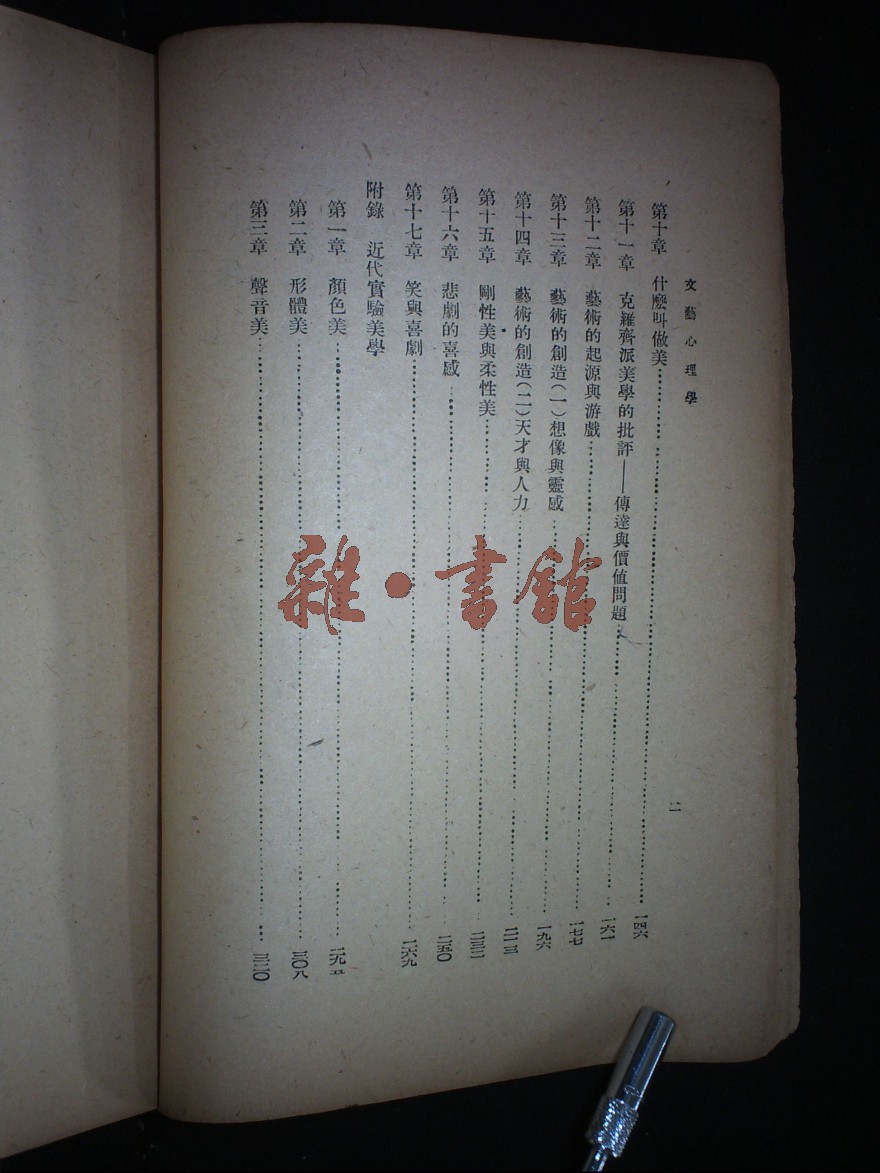 文藝心理學
二
第十章 什麽叫做美……一四六
第十一章 克羅齊派美學的批評——傳達與價值問題……一六一
第十二章 藝術的起源與游戲……一七七
第十三章 藝術的創造(一)想像與靈感……一九六
第十四章 藝術的創造(二)天才與人力……二一三
第十五章 剛性美與柔性美……二三二
第十六章 悲劇的喜感……二五〇
第十七章 笑與喜劇……二六九
附錄 近代實驗美學
第一章 顏色美……二九五
第二章 形體美……三〇八
第三章 聲音美……三二〇
雜·書館